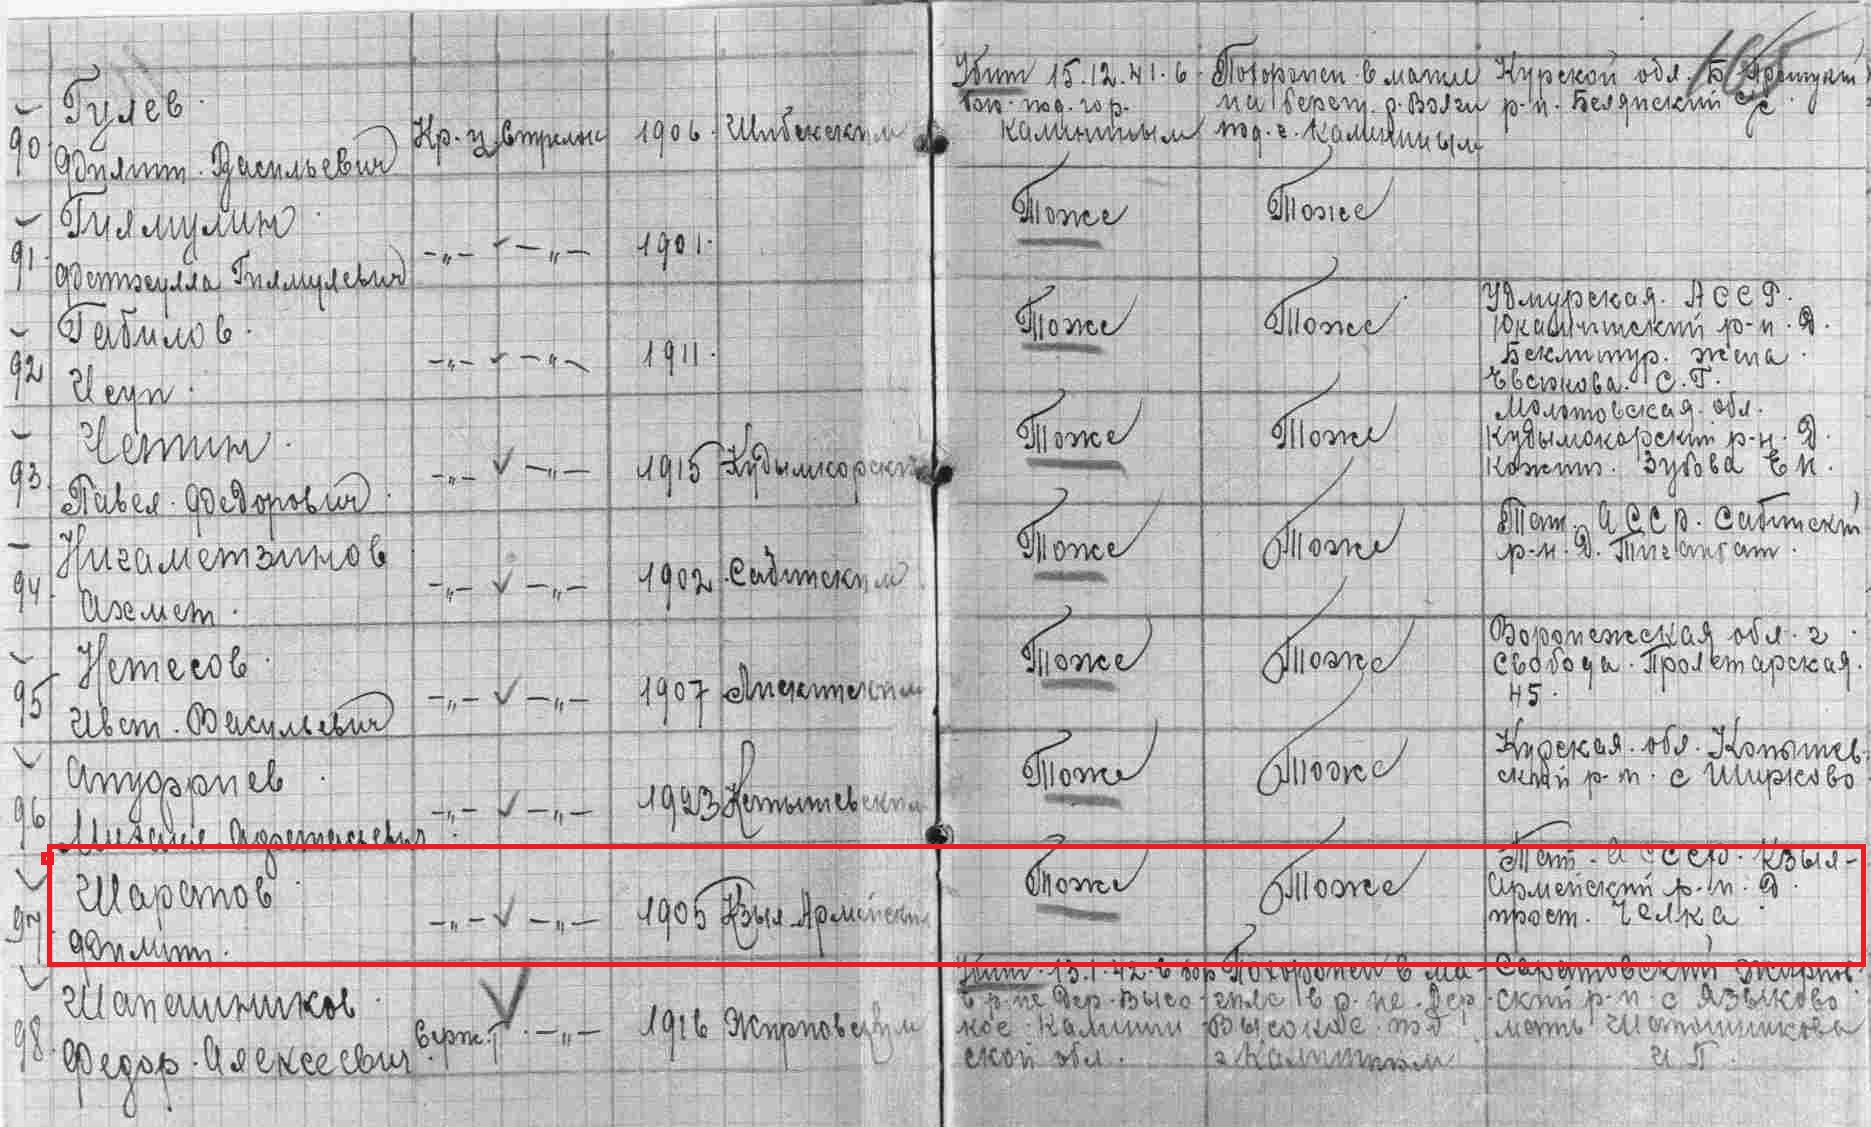 105
90 Гулев Филипп Васильевич Кр-ц стрелок 1906 Шибекским Убит 15.12.41 в бою под гор. Калинином Похоронен в могиле на берегу р. Волги под г. Калинином Курской обл. Б р-н
91 Гилмулин Гилмулевич -„- -„- 1901 Тоже Тоже
92 Габилов Исуп -„- -„- 1911 Тоже Тоже Удмурская АССР р-н Д. жена С.Г.
93 Четин Павел Федорович -„- -„- 1915 Кудымкорским Тоже Тоже Молотовская обл. Кудымокорский р-н Д. Зубова Е Н.
94 Нигаметзинов Ахмет -„- -„- 1902 Сабинским Тоже Тоже Тат. АССР. Сабинский р-н Д.
95 Нетесов Иван Васильевич -„- -„- 1907 Лискинским Тоже Тоже Воронежская обл. г Свобода Пролетарская 45
96 Ануфриев Михаил -„- -„- 1923 Тоже Тоже Курская обл. р-н с Ширково
97 Шарапов Филипп -„- -„- 1905 Кзыл-Армейским Тоже Тоже Тат. АССР Кзыл-Армейский р-н Д. Челка
98 Шапошников Федор Алексеевич Серж. -„- 1916 Жирновским Убит 13.1.42 в бою в р-не дер. Высокое Калининской обл. Похоронен в могиле в р-не дер. Высокое под г Калинином Саратовский Жирновский р-н с Языково мать Шапошникова И П.